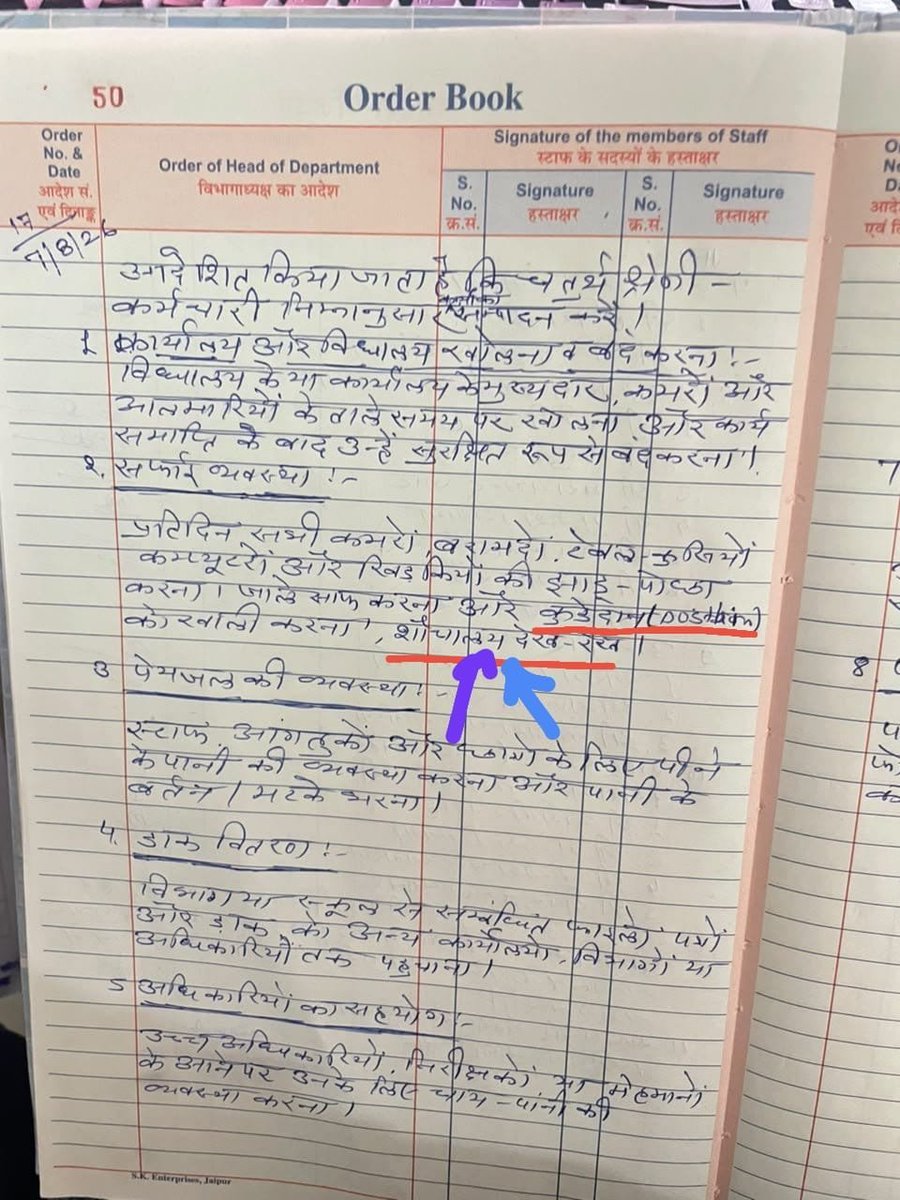 50
Order Book
Order No. & Date
आदेश सं. एवं दिनाङ्क
Order of Head of Department
विभागाध्यक्ष का आदेश
Signature of the members of Staff
स्टाफ के सदस्यों के हस्ताक्षर
S. No. क्र.सं.
Signature हस्ताक्षर
S. No. क्र.सं.
Signature हस्ताक्षर
7/8/26
आदेशित किया जाता है कि चतुर्थ श्रेणी -
कर्मचारी निम्नानुसार करें।
1. कार्यालय और विद्यालय खोलना व बंद करना:-
विद्यालय के या कार्यालय के मुख्यदार, कमरों और
आलमारियों के ताले समय पर खोलना और कार्य
समाप्ति के बाद उन्हें सुरक्षित रूप से बंद करना।
2. सफाई व्यवस्था:-
प्रतिदिन सभी कमरों, बरामदों, टेबल-कुर्सियों
कम्प्यूटरों और खिडकियों की झाड-पोछा
करना। जाले साफ करना और कुडेदान (Dostbin)
को खाली करना, शौचालय देख-रेख।
3 पेयजल की व्यवस्था:-
स्टाफ, आंगतुकों और छात्रों के लिए पीने
के पानी की व्यवस्था करना और पानी के
बर्तन / मटके भरना।
4. डाक वितरण:-
विभाग या स्कूल से सम्बंधित फाइलों, पत्रों
और डाक को अन्य कार्यालयों, विभागों या
अधिकारियों तक पहुचाना।
5 अधिकारियों का सहयोग:-
उच्च अधिकारियों, निरीक्षकों या मेहमानों
के आने पर उनके लिए चाय-पानी की
व्यवस्था करना।
S.K. Enterprises, Jaipur
7
8